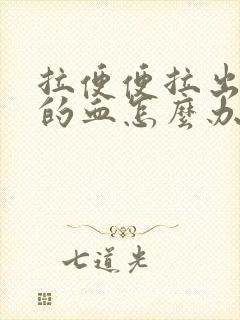 拉便便拉出
的血怎麼办
七道光